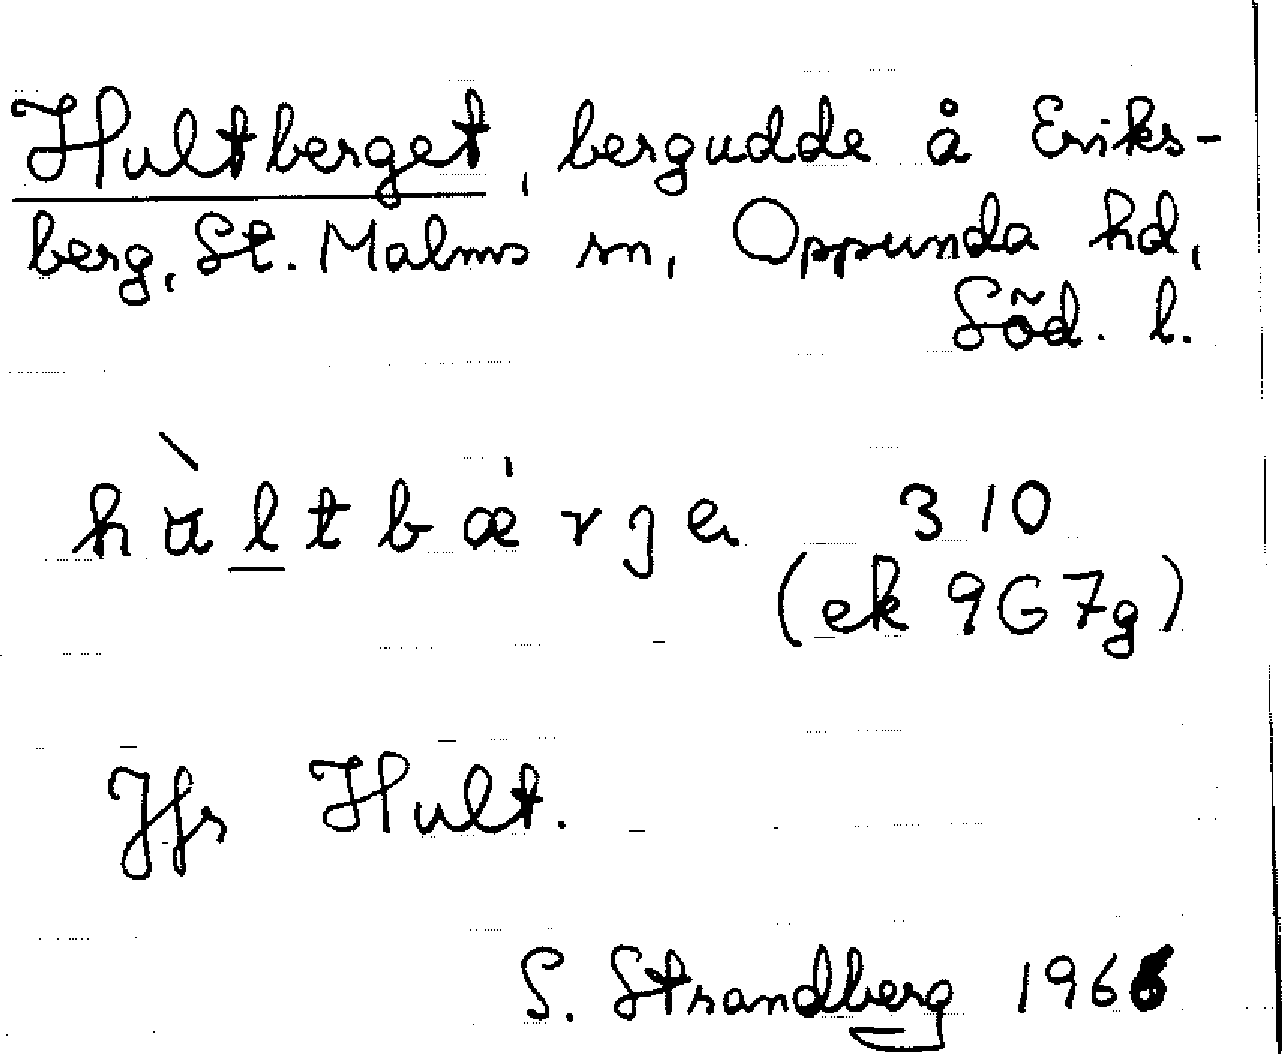 Hultberget, bergudde å Eriks-
berg, St. Malms sn, Oppunda hd,
Söd. l.
hàltbærjeṇ 310
(ek 9G7g)
Jfr Hult.
S. Strandberg 1966